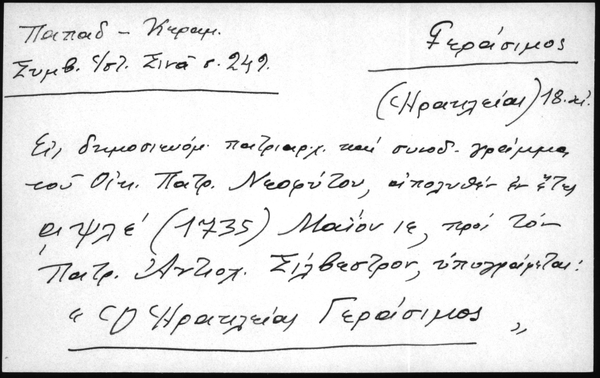 Παπαδ - Κεραμ.
Συμβ. ἱστ. Σινᾶ σ. 249.
Γεράσιμος
(Ἡρακλείας) 18. αἰ.
Εἰς δημοσιευόμ. πατριαρχ. καὶ συνοδ. γράμμα
τοῦ Οἰκ. Πατρ. Νεοφύτου, ἀπολυθὲν ἐν ἔτει
αψλέ (1735) Μαΐου ιε, πρὸς τὸν
Πατρ. Ἀντιοχ. Σίλβεστρον, ὑπογράφεται:
« Ὁ Ἡρακλείας Γεράσιμος »